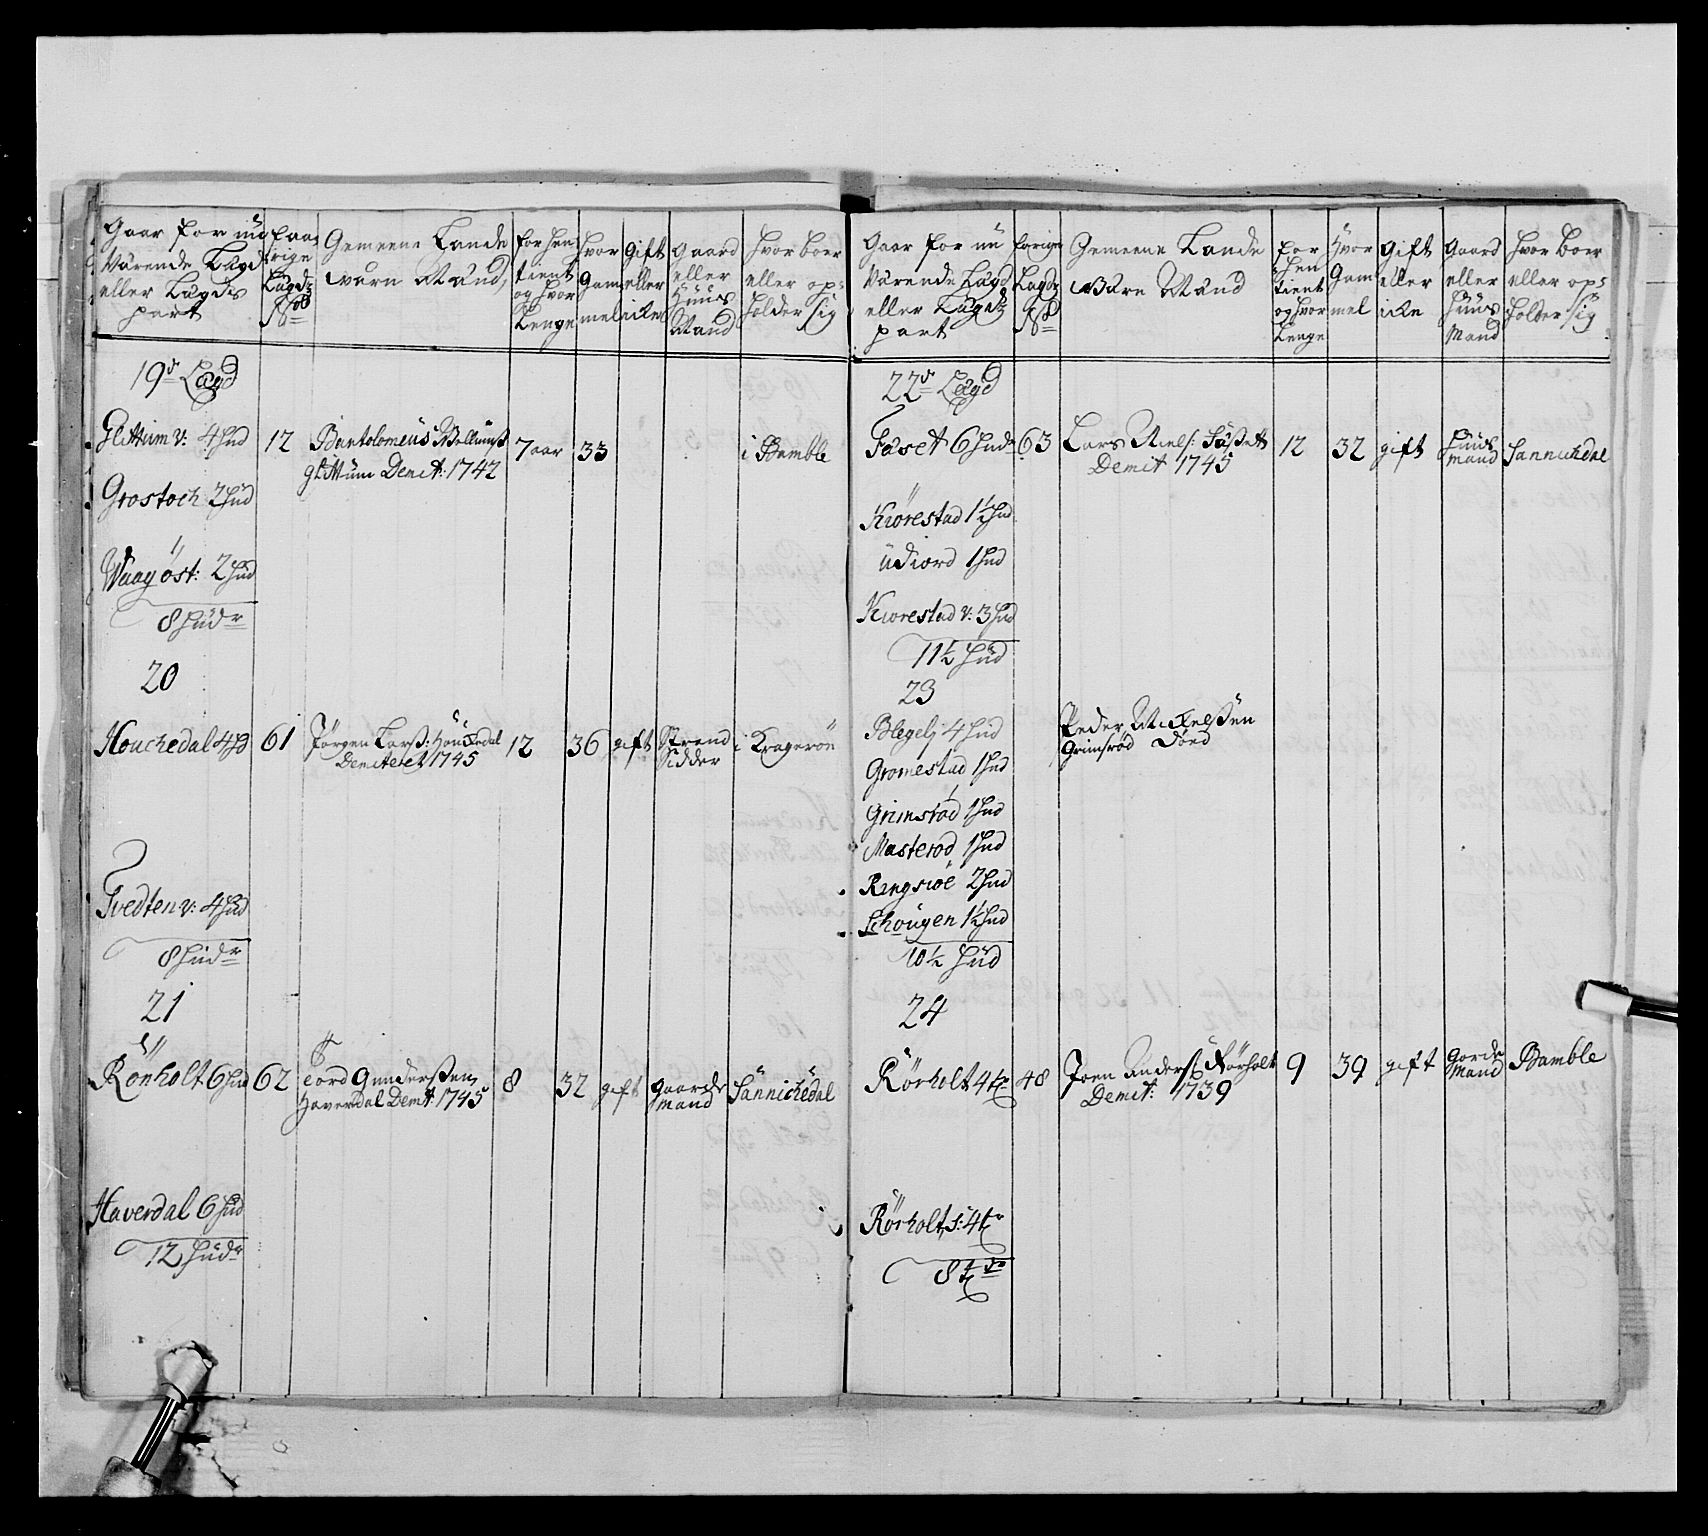 Gaar for nu
Værende Lægd
eller Lægds
part
Faa=
rige
Lægdz
No
Gemeene Lande
værn Mand,
for hen
tient
og hvor
Lenge
hvor
Gam
mel
Gift
eller
icke
Gaard
eller
Huus
Mand
hvor boer
eller op=
holder sig
19de Lægd
Glittum v: 4 hud
12
Bantolomeus Wellumss
glittum Demit: 1742
7 aar
33
i Bamble
Grostock 2 hud
Waag öst: 2 hud
8 hudr
20
Houchedal 4 hd
61
Jörgen Larss: Houchedal
Demiteret 1745
12
36
gift
Strand
Sidder
i Krageröe
Tvedten v: 4 hud
8 hudr
21
Rönholt 6 hud
62
Tord Gunderssen
Haverdal Demt: 1745
8
32
gift
gaards
mand
Sannichedal
Haverdal 6 hud
12 hudr
Gaar for nu
Værende Lægd
eller Lægdz
part
forige
Lagdz
No
Gemeene Lande
Værn Mand
for
hen
tient
og hvor
Lenge
Hvor
Gam
mel
Gift
eller
icke
Gaard
eller
Huus
Mand
hvor boer
eller op=
holder sig
22de Lægd
Faset 6 hudr
63
Lars Niels: Fassett
Demit 1745
12
32
gift
huus
mand
Sannichdal
Kiörestad 1½ hud
Udiord 1 hud
Kiörestad v: 3 hud
11½ hud
23
Blegeli 4 hud
Peder Mickelssen
Grimsröd Död
Gromestad 1 hud
Grimsröd 1 hud
Masteröd 1 hud
Ringsiöe 2 hud
Schougen 1½ hud
10½ hud
24
Rörholt 4 tr
48
Joen Anderss Rörholt
Demit: 1739
9
39
gift
Gords
Mand
Bamble
Rörholt, s: 4 tr
8 tdr